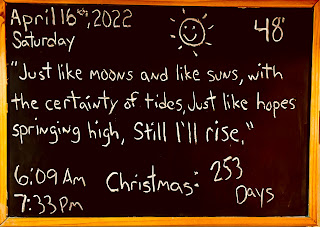 April 16th, 2022
Saturday
48°
"Just like moons and like suns, with
the certainty of tides, Just like hopes
springing high, Still I'll rise."
6:09 Am
7:33 Pm
Christmas: 253
Days